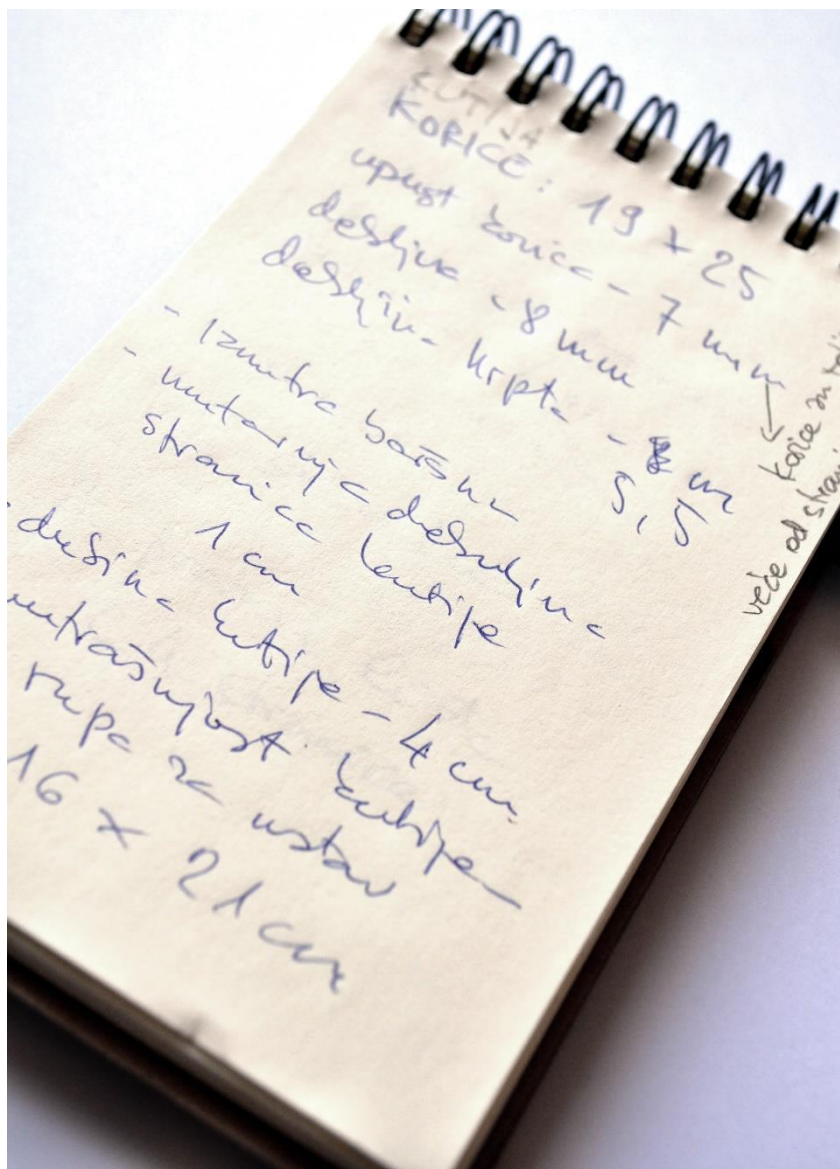 KUTIJA
KORICE: 19 x 25
upust korica - 7 mm
debljina - 8 mm
debljina hrpta - 8 m
5,5
korice su
veće od
- Iznutra
- unutarnja debuljina
stranice kutije
1 cm
- dužina kutije - 4 cm
unutrašnjost kutije -
rupa za ustav
16 x 21 cm